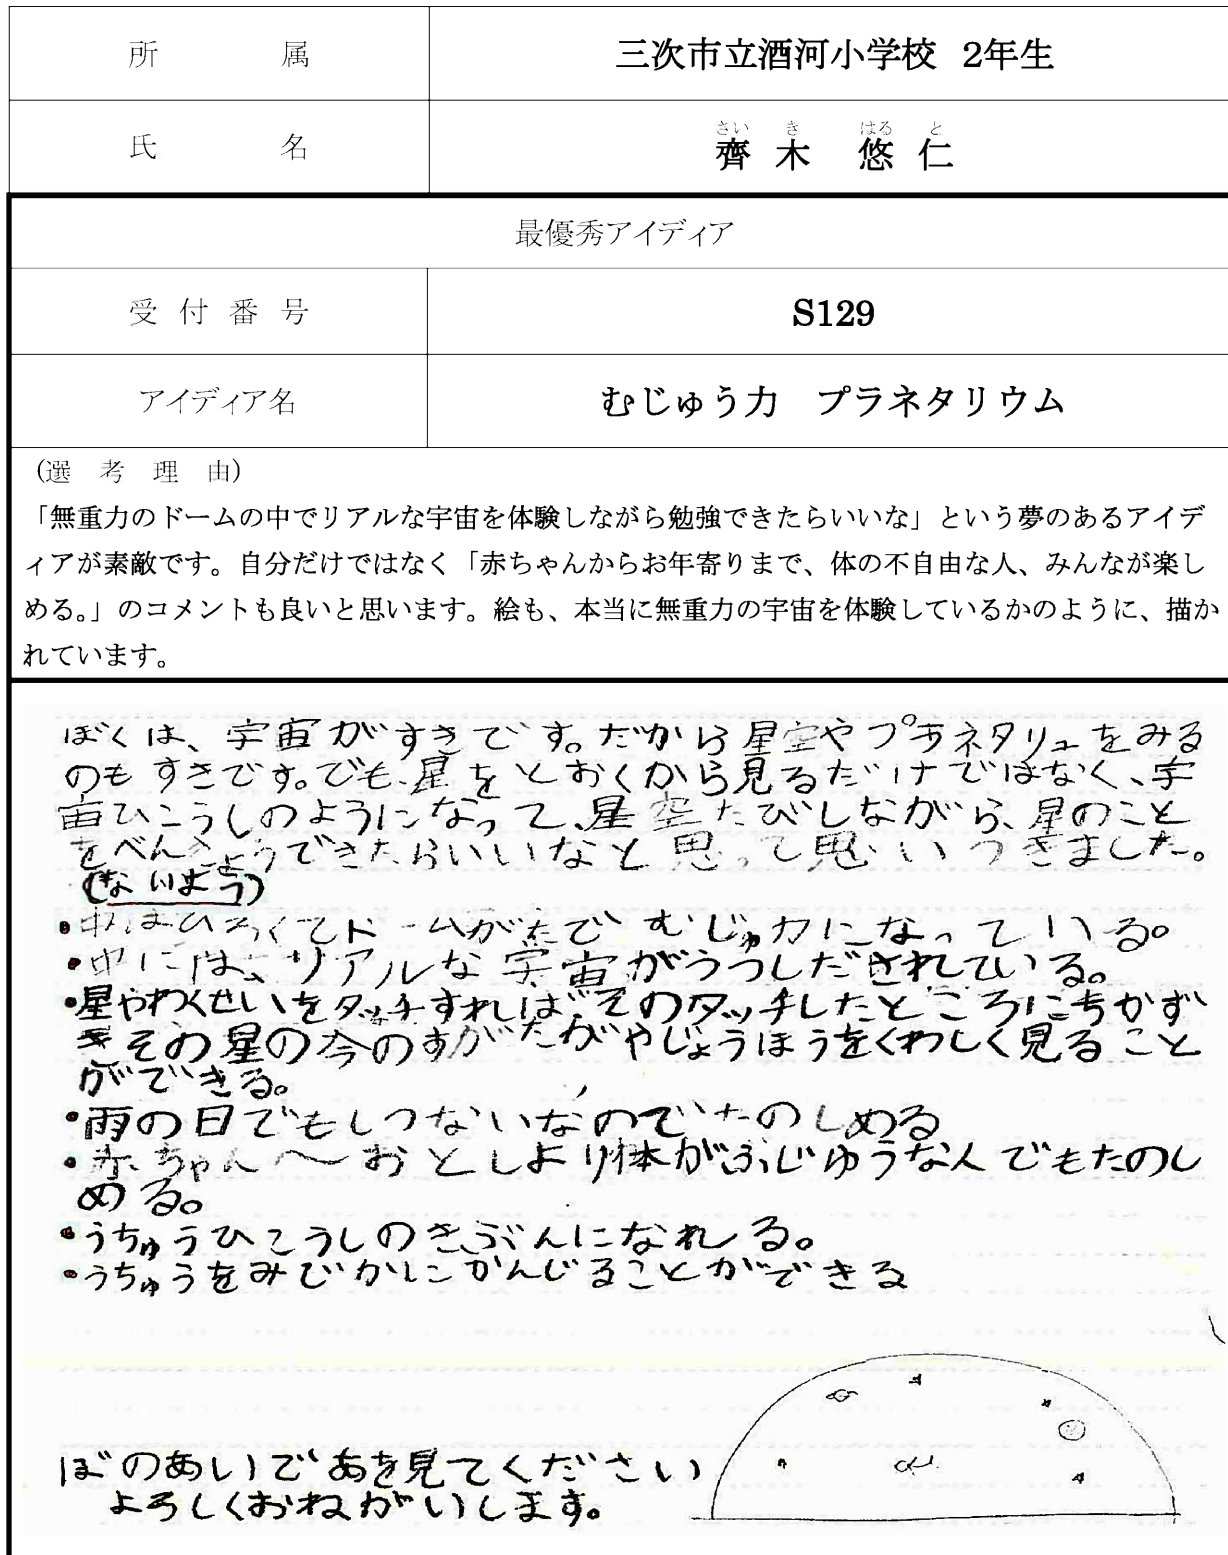 所属 三次市立酒河小学校 2年生
さい き はる と
氏名 齊木 悠仁
最優秀アイディア
受付番号 S129
アイディア名 むじゅう力 プラネタリウム
(選考理由)
「無重力のドームの中でリアルな宇宙を体験しながら勉強できたらいいな」という夢のあるアイデ
ィアが素敵です。自分だけではなく「赤ちゃんからお年寄りまで、体の不自由な人、みんなが楽し
める。」のコメントも良いと思います。絵も、本当に無重力の宇宙を体験しているかのように、描か
れています。
ぼくは、宇宙がすきです。だから星空やプラネタリュをみる
のもすきです。でも、星をとおくから見るだけではなく、宇
宙ひこうしのようになって、星空たびしながら、星のこと
をべんきょうできたらいいなと思って思いつきました。
(ないよう)
・中はひろくてドームがたでむじゅ力になっている。
・中には、リアルな宇宙がうつしだされている。
・星やわくせいをタッチすれば、そのタッチしたところにちかず
きその星の今のすがたがやじょうほうをくわしく見ること
ができる。
・雨の日でもしつないなのでたのしめる
・赤ちゃん〜おとしより体がふじゆうな人でもたのし
める。
・うちゅうひこうしのきぶんになれる。
・うちゅうをみじかにかんじることができる
ぼのあいであを見てください
よろしくおねがいします。